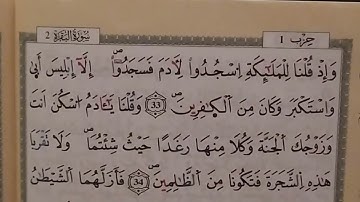 حِزْب 1
سُورَةُ البَقَرَة 2
وَإِذْ قُلْنَا لِلْمَلَٰٓئِكَةِ اِسْجُدُواْ لِأٓدَمَ فَسَجَدُوٓاْ إِلَّآ إِبْلِيسَ أَبَىٰ
وَاسْتَكْبَرَ وَكَانَ مِنَ اَلْكَٰفِرِينَ 33 وَقُلْنَا يَٰٓـَٔادَمُ اُسْكُنَ اَنتَ
وَزَوْجُكَ اَلْجَنَّةَ وَكُلَا مِنْهَا رَغَداً حَيْثُ شِئْتُمَا وَلَا تَقْرَبَا
هَٰذِهِ اِلشَّجَرَةَ فَتَكُونَا مِنَ اَلظَّٰلِمِينَ 34 فَأَزَلَّهُمَا اَلشَّيْطَٰنُ